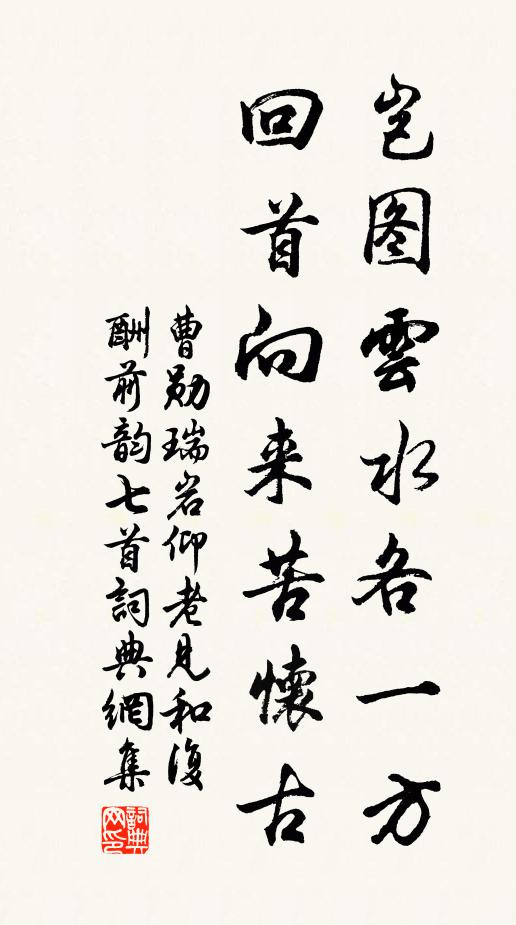 岂图雲水各一方
回首向来苦懷古
曹勋瑞岩仰老見和復
酬前韵七首詞典網集
詞典网印